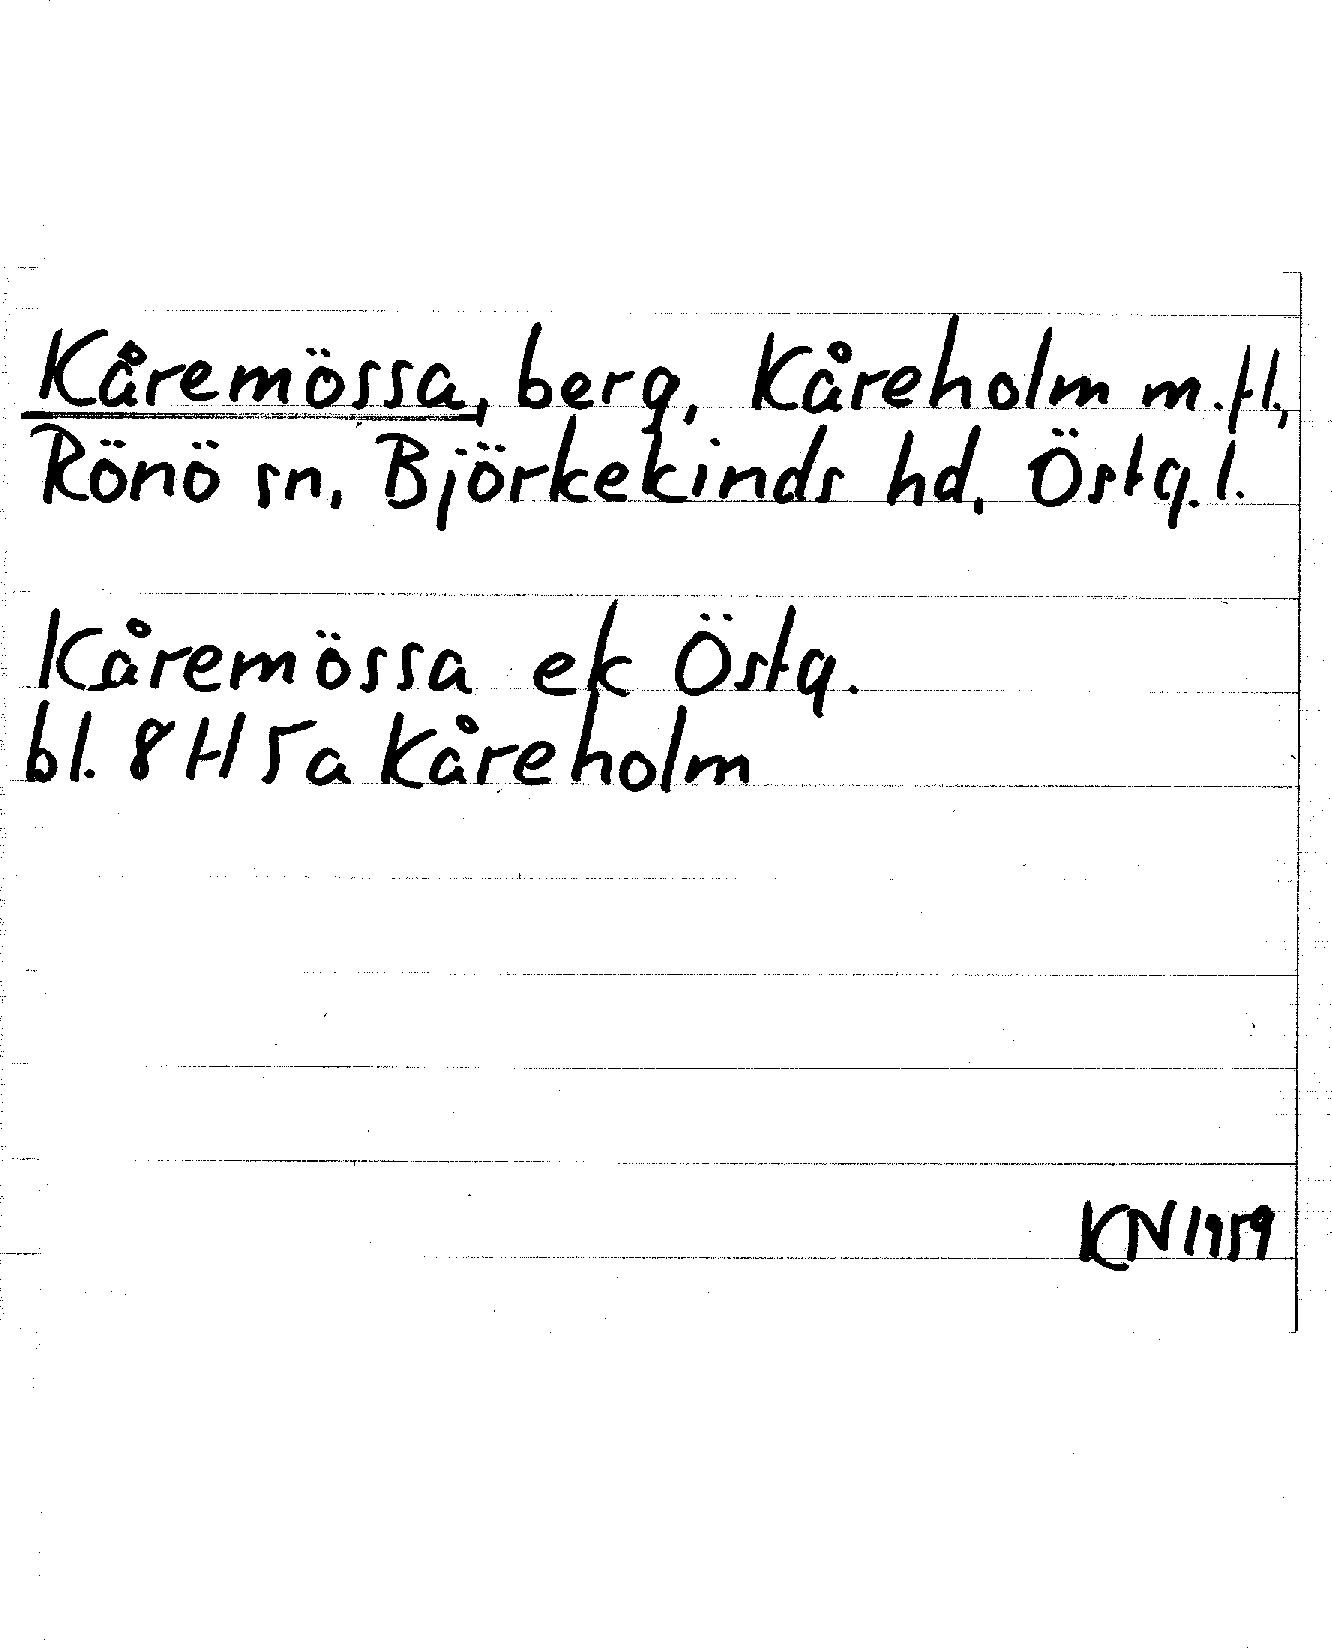 Kåremössa, berg, Kåreholm m.fl.,
Rönö sn, Björkekinds hd, Östg.l.
Kåremössa ek Östg.
bl. 8 H 5a Kåreholm
KN 1959